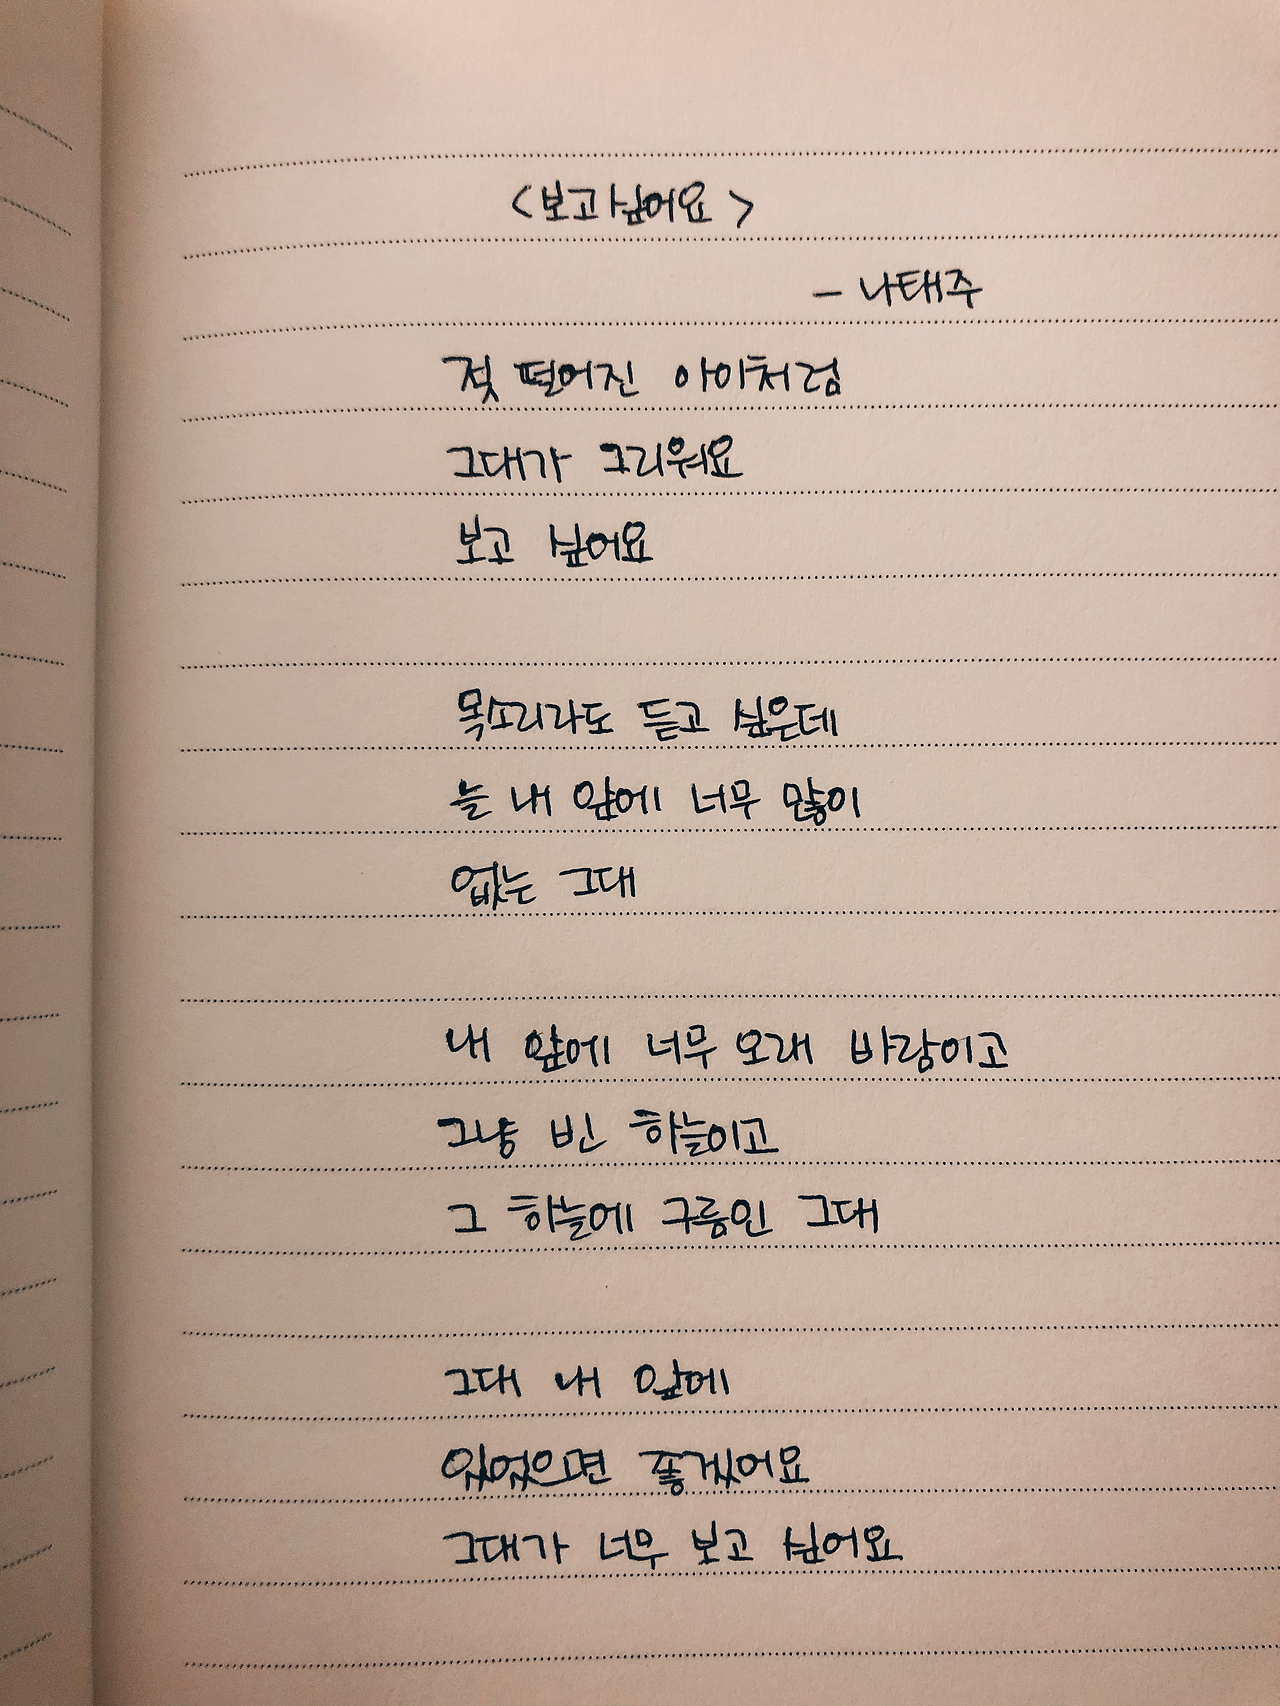 <보고싶어요>
- 나태주
젖 떨어진 아이처럼
그대가 그리워요
보고 싶어요
목소리라도 듣고 싶은데
늘 내 앞에 너무 많이
없는 그대
내 앞에 너무 오래 바람이고
그냥 빈 하늘이고
그 하늘에 구름인 그대
그대 내 앞에
있었으면 좋겠어요
그대가 너무 보고 싶어요